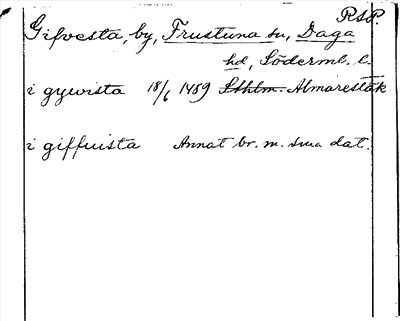 RSP.
Gifvesta, by, Frustuna sn, Daga
hd, Söderml. l.
i gywista 18/6 1489 Sthlm. Almarestäk
i giffuista Annat br. m. sma dat.